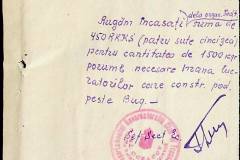 dela organ. Todt
Rugăm încasați suma de
450 RKKS (patru sute cincizeci)
pentru cantitatea de 1500 kgr
porumb necesare hrana lu-
crătorilor care constr. pod.
peste Bug.-